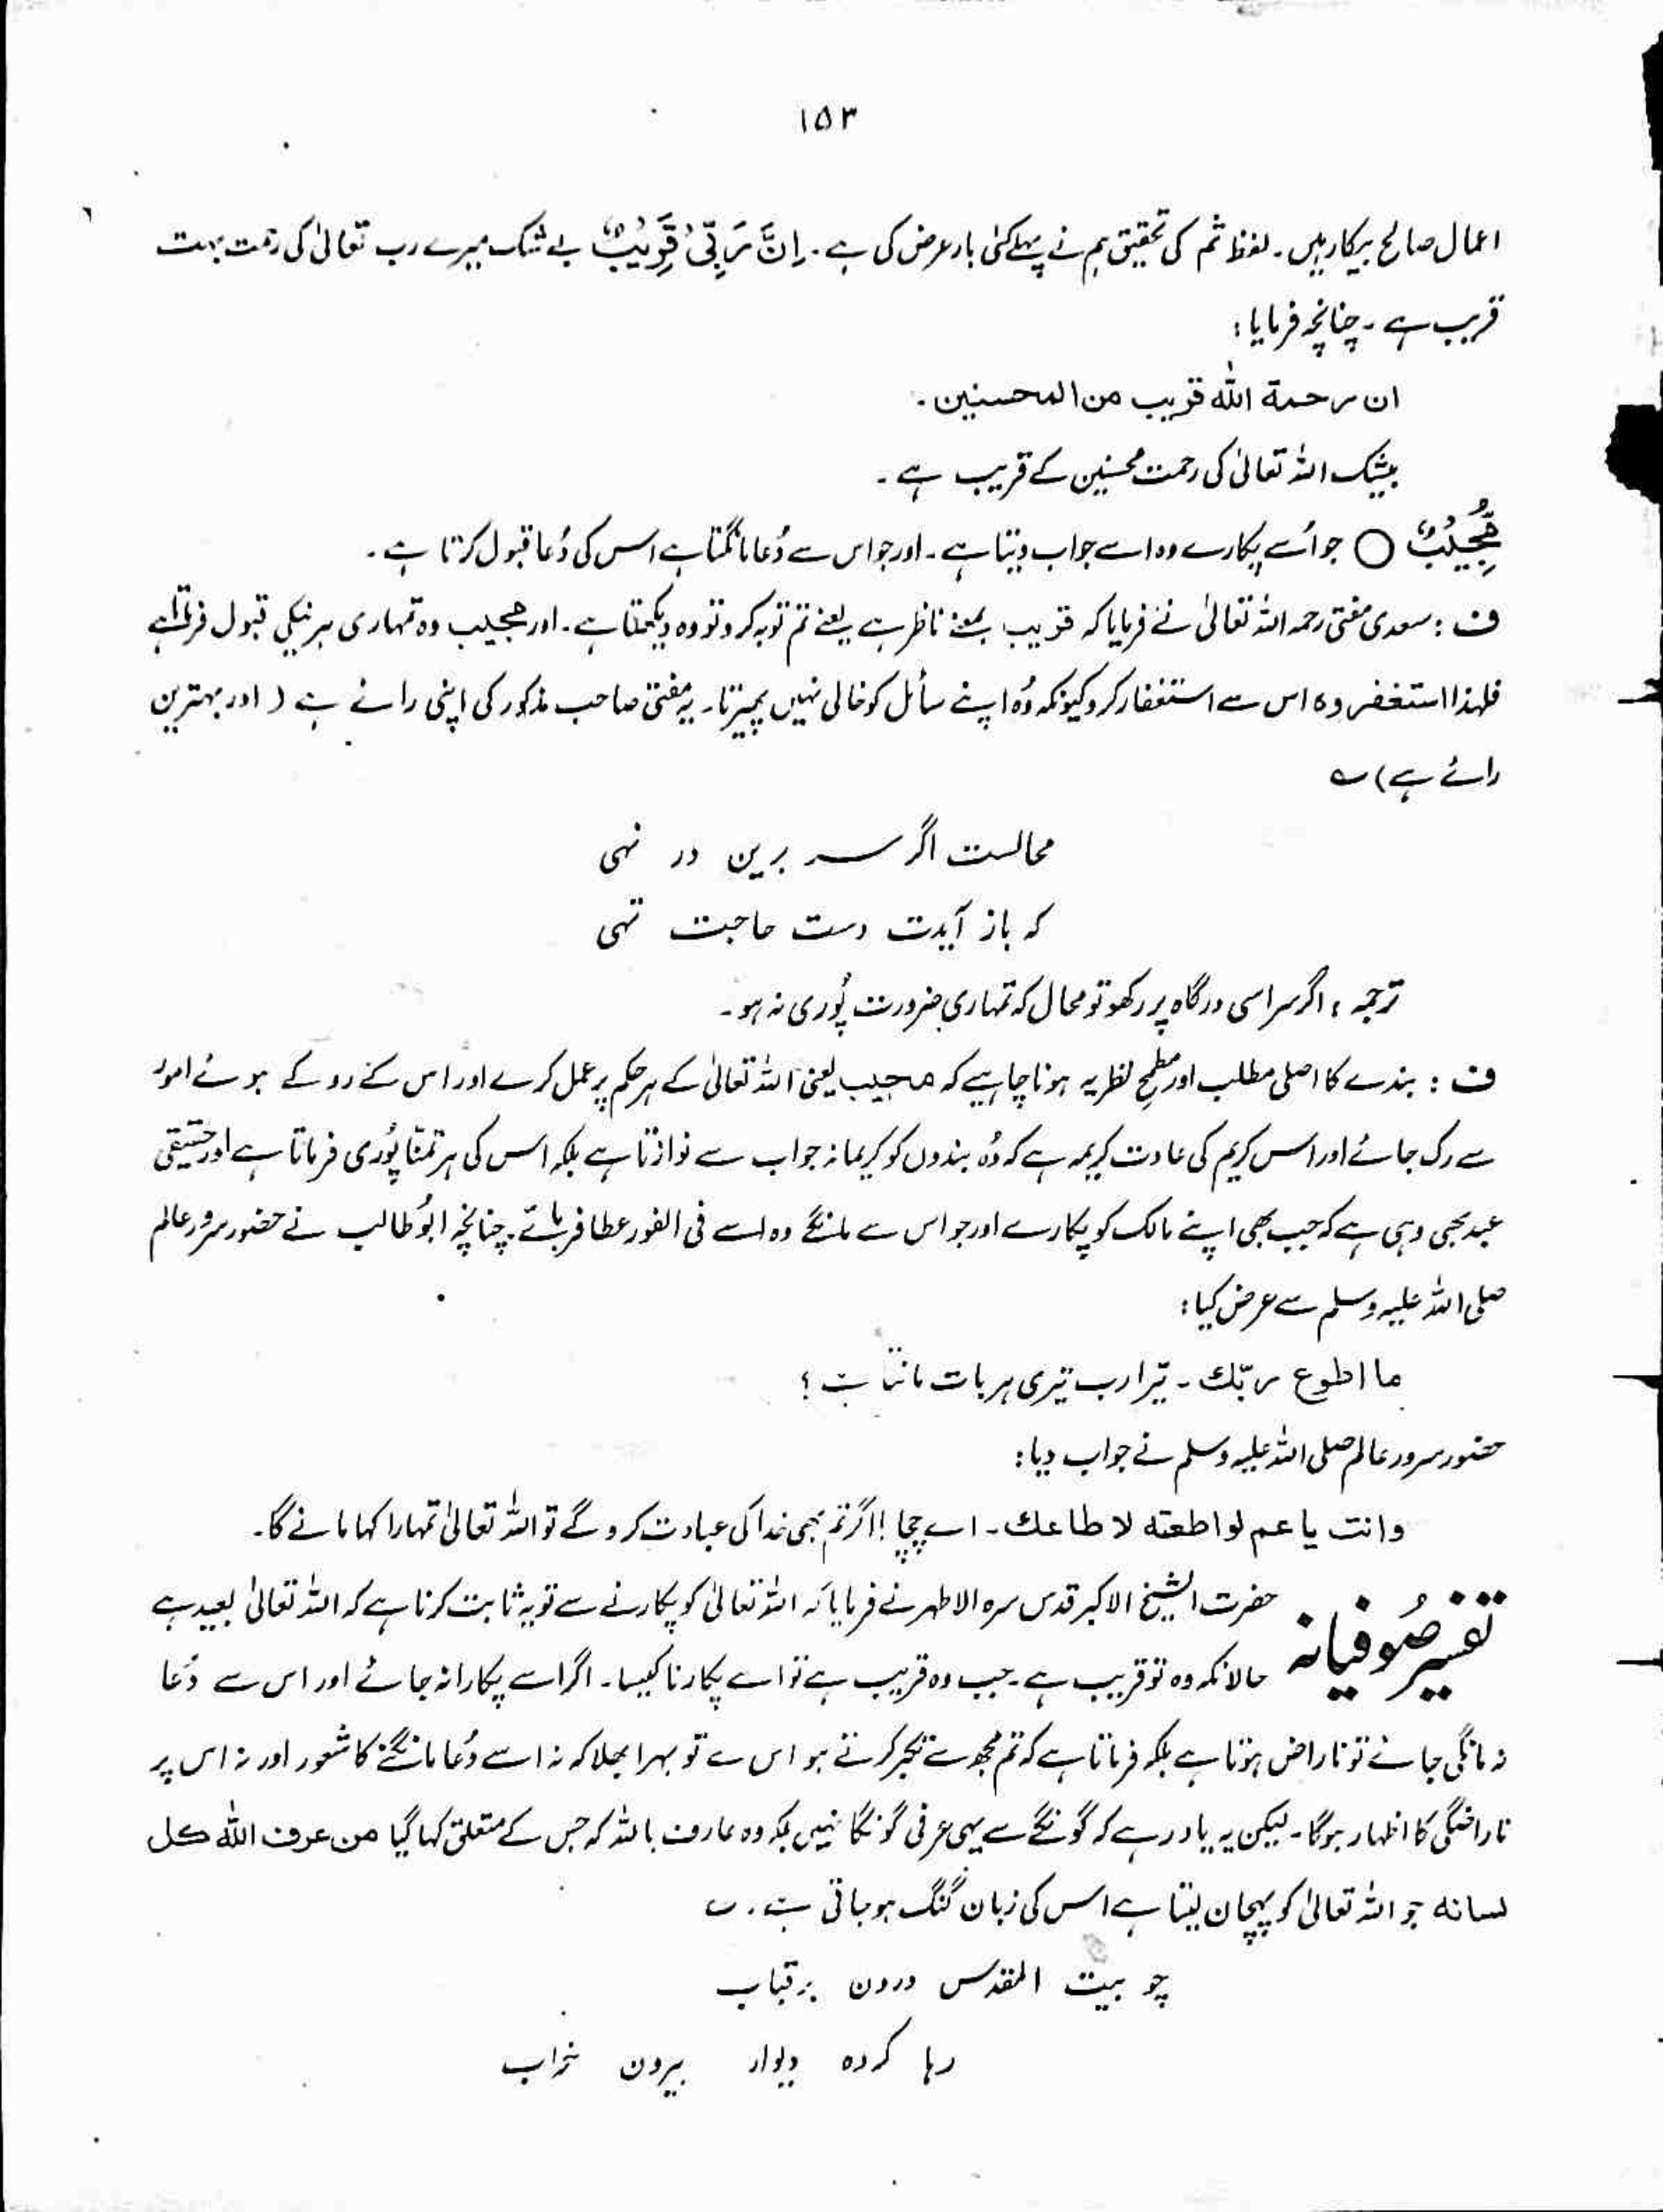 ۱۵۳
اعمال صالح بیکار ہیں۔ لفظ ثم کی تحقیق ہم نے پہلے کئی بار عرض کی ہے۔ اِنَّ رَبِّیْ قَرِیْبٌ بے شک میرے رب تعالیٰ کی رحمت بہت
قریب ہے۔ چنانچہ فرمایا:
ان رحمة الله قریب من المحسنین۔
بیشک اللہ تعالیٰ کی رحمت محسنین کے قریب ہے۔
مُّجِیْبٌ ○ جو اُسے پکارے وہ اسے جواب دیتا ہے۔ اور جو اس سے دُعا مانگتا ہے اس کی دُعا قبول کرتا ہے۔
ف: سعدی مفتی رحمہ اللہ تعالیٰ نے فرمایا کہ قریب بمعنے ناظر ہے یعنے تم توبہ کرو تو وہ دیکھتا ہے۔ اور مجیب وہ تمہاری ہر نیکی قبول فرماتا ہے
فلہذا استغفروہ اس سے استغفار کرو کیونکہ وُہ اپنے سائل کو خالی نہیں پھیرتا۔ یہ مفتی صاحب مذکور کی اپنی رائے ہے (اور بہترین
رائے ہے) ؎
محالست اگر سر برین در نہی
کہ باز آیدت دست حاجت تہی
ترجمہ: اگر سر اسی درگاہ پر رکھو تو محال کہ تمہاری ضرورت پُوری نہ ہو۔
ف: بندے کا اصلی مطلب اور مطمحِ نظر یہ ہونا چاہیے کہ مجیب یعنی اللہ تعالیٰ کے ہر حکم پر عمل کرے اور اس کے روکے ہوئے امور
سے رک جائے اور اس کریم کی عادت کریمہ ہے کہ وُہ بندوں کو کریمانہ جواب سے نوازتا ہے بلکہ اس کی ہر تمنّا پُوری فرماتا ہے اور حقیقی
عبد بھی وہی ہے کہ جب بھی اپنے مالک کو پکارے اور جو اس سے مانگے وہ اسے فی الفور عطا فرمائے۔ چنانچہ ابُو طالب نے حضور سرور عالم
صلی اللہ علیہ وسلم سے عرض کیا:
ما اطوع ربّك۔ تیرا رب تیری ہر بات مانتا ہے؟
حضور سرور عالم صلی اللہ علیہ وسلم نے جواب دیا:
وانت یا عم لو اطعته لاطاعك۔ اے چچا! اگر تم بھی خدا کی عبادت کرو گے تو اللہ تعالیٰ تمہارا کہا مانے گا۔
تفسیر صُوفیانہ حضرت الشیخ الاکبر قدس سرہ الاطہر نے فرمایا کہ اللہ تعالیٰ کو پکارنے سے تو یہ ثابت کرنا ہے کہ اللہ تعالیٰ بعید ہے
حالانکہ وہ تو قریب ہے۔ جب وہ قریب ہے تو اسے پکارنا کیسا۔ اگر اسے پکارا نہ جائے اور اس سے دُعا
نہ مانگی جائے تو ناراض ہوتا ہے بلکہ فرماتا ہے کہ تم مجھ سے تکبر کرتے ہو اس سے تو بہرا بھلا کہ نہ اسے دُعا مانگنے کا شعور اور نہ اس پر
ناراضگی کا اظہار ہوگا۔ لیکن یہ یاد رہے کہ گونگے سے یہی عرفی گونگا نہیں بلکہ وہ عارف باللہ کہ جس کے متعلق کہا گیا من عرف الله کل
لسانه جو اللہ تعالیٰ کو پہچان لیتا ہے اس کی زبان گنگ ہو جاتی ہے۔ ؎
چو بیت المقدس درون پر قباب
رہا کردہ دیوار بیرون خراب